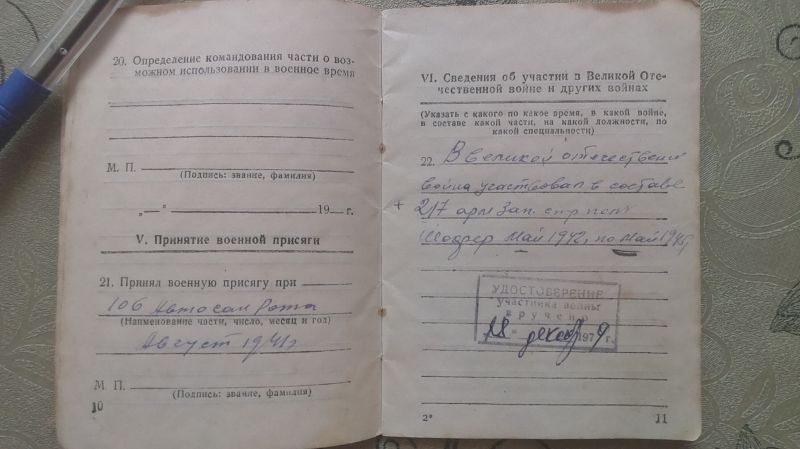 20. Определение командования части о воз-
можном использовании в военное время
М. П.
(Подпись: звание, фамилия)
„—“ 19— г.
V. Принятие военной присяги
21. Принял военную присягу при
106 Автосан Рота
(Наименование части, число, месяц и год)
Август 1941г
М. П.
(Подпись: звание, фамилия)
10
VI. Сведения об участии в Великой Оте-
чественной войне и других войнах
(Указать с какого по какое время, в какой войне,
в составе какой части, на какой должности, по
какой специальности)
22. В великой отечественной
война участвовал в составе
217 арм зап. стр полк
Май 1942г по Май 1945г
УДОСТОВЕРЕНИЕ
участника войны
вручено
18 " декабр 1979 г.
2*
11